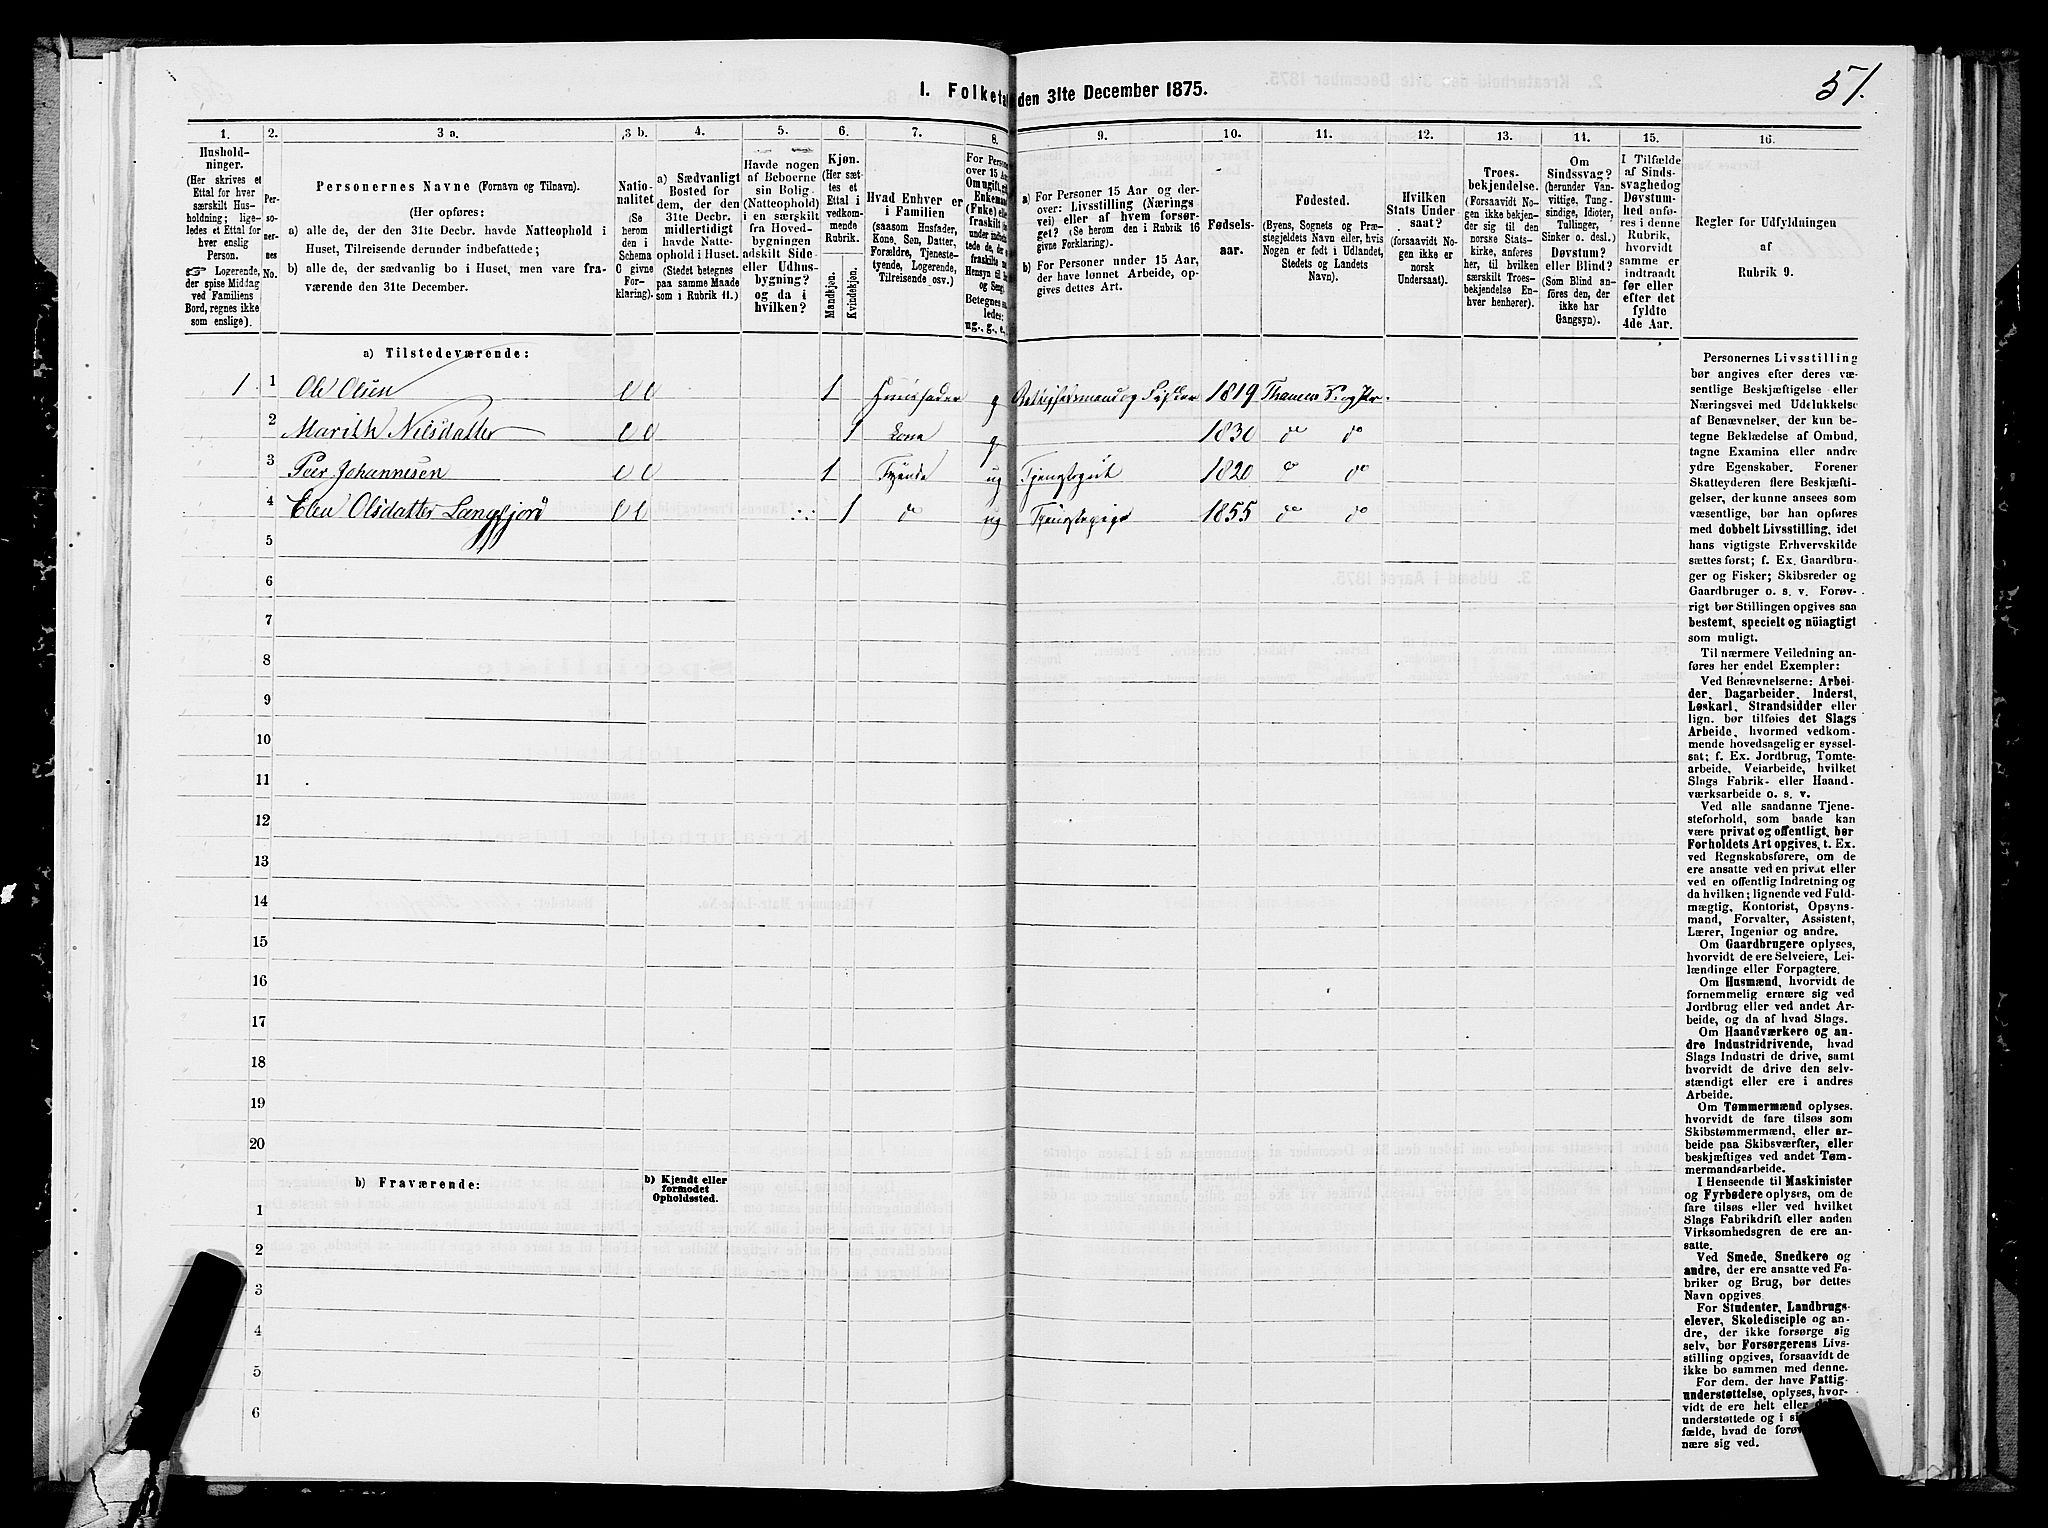 51.
1. Folketal den 31te December 1875.
1.
2.
3 a.
3 b.
4.
5.
6.
7.
8.
9.
10.
11.
12.
13.
14.
15.
16.
Husholdninger.
(Her skrives et
Ettal for hver
særskilt Husholdning;
ligeledes et Ettal for
hver enslig
Person.
☞ Logerende,
der spise Middag
ved Familiens
Bord, regnes ikke
som enslige).
Personernes No.
Personernes Navne (Fornavn og Tilnavn).
(Her opføres:
a) alle de, der den 31te Decbr. havde Natteophold i
Huset, Tilreisende derunder indbefattede;
b) alle de, der sædvanlig bo i Huset, men vare fraværende
den 31te December.
Nationalitet
(Se
herom
den i
Schema
C givne
Forklaring).
a) Sædvanligt
Bosted for
dem, der den
31te Decbr.
midlertidigt
havde Natteophold
i Huset.
(Stedet betegnes
paa samme Maade
som i Rubrik 11.)
Havde nogen
af Beboerne
sin Bolig
(Natteophold)
i en særskilt
fra Hovedbygningen
adskilt Side-
eller Udhusbygning?
og da i
hvilken?
Kjøn.
(Her sættes
et
Ettal i
vedkommende
Rubrik.
Mandkjøn.
Kvindekjøn.
Hvad Enhver er
i Familien
(saasom Husfader,
Kone, Søn, Datter,
Forældre, Tjenestetyende,
Logerende,
Tilreisende osv.)
a) For Personer 15 Aar og derover:
Livsstilling (Næringsvei)
eller af hvem forsørget?
(Se herom den i Rubrik 16
givne Forklaring).
b) For Personer under 15 Aar,
der have lønnet Arbeide, opgives
dettes Art.
Fødselsaar.
Fødested.
(Byens, Sognets og Præstegjeldets
Navn eller, hvis
Nogen er født i Udlandet,
Stedets og Landets
Navn).
Hvilken
Stats Undersaat?
(forsaavidt Nogen
ikke er
norsk
Undersaat).
Troesbekjendelse.
(Forsaavidt Nogen
ikke bekjender
sig til den
norske Statskirke,
anføres
her, til hvilken
særskilt Troesbekjendelse
Enhver henhører).
Om
Sindssvag?
(herunder Vanvittige,
Tungsindige,
Idioter,
Tullinger,
Sinker o. desl.)
Døvstum?
eller Blind?
(Som Blind anføres
den, der
ikke har
Gangsyn).
I Tilfælde
af Sindssvaghed
og
Døvstumhed
anføres
i denne
Rubrik,
hvorvidt
samme er
indtraadt
før eller
efter det
fyldte
4de Aar.
Regler for Udfyldningen
af
Rubrik 9.
a) Tilstedeværende:
1 1 Ole Olsen 1 Huusfader g 1819
2 Marith Nilsdatter 1 Kone g 1830 do do
3 Peer Johannesen 1 Tyende ug 1820 do do
4 Elen Olsdatter Langfjord 1 do ug Tjenestepige 1855 do do
5
6
7
8
9
10
11
12
13
14
15
16
17
18
19
20
b) Fraværende:
b) Kjendt eller
formodet
Opholdssted.
1
2
3
4
5
6
Personernes Livsstilling
bør angives efter deres væsentlige
Beskjæftigelse eller
Næringsvei med Udelukkelse
af Benævnelser, der kun betegne
Beklædelse af Ombud,
tagne Examina eller andre
ydre Egenskaber. Forener
Skatteyderen flere Beskjæftigelser,
der kunne ansees som
væsentlige, bør han opføres
med dobbelt Livsstilling, idet
hans vigtigste Erhvervskilde
sættes først; f. Ex. Gaardbruger
og Fisker; Skibsreder og
Gaardbruger o. s. v. Forøvrigt
bør Stillingen opgives saa
bestemt, specielt og nöiagtigt
som muligt.
Til nærmere Veiledning anføres
her endel Exempler:
Ved Benævnelserne: Arbeider,
Dagarbeider, Inderst,
Løskarl, Strandsidder eller
lign. bør tilføies det Slags
Arbeide, hvormed vedkommende
hovedsagelig er sysselsat;
f. Ex. Jordbrug, Tomtearbeide,
Veiarbeide, hvilket
Slags Fabrik- eller Haandværksarbeide
o. s. v.
Ved alle saadanne Tjenesteforhold,
som baade kan
være privat og offentligt, bør
Forholdets Art opgives, t. Ex.
ved Regnskabsførere, om de
ere ansatte ved en privat eller
ved en offentlig Indretning og
da hvilken; lignende ved Fuldmægtig,
Kontorist, Opsynsmand,
Forvalter, Assistent,
Lærer, Ingeniør og andre.
Om Gaardbrugere oplyses,
hvorvidt de ere Selveiere, Leilændinge
eller Forpagtere.
Om Husmænd, hvorvidt de
fornemmelig ernære sig ved
Jordbrug eller ved andet Arbeide,
og da af hvad Slags.
Om Haandværkere og andre
Industridrivende, hvad
Slags Industri de drive, samt
hvorvidt de drive den selvstændigt
eller ere i andres
Arbeide.
Om Tømmermænd oplyses,
hvorvidt de fare tilsøs som
Skibstømmermænd, eller arbeide
paa Skibsværfter, eller
beskjæftiges ved andet Tømmermandsarbeide.
I Henseende til Maskinister
og Fyrbødere oplyses, om de
fare tilsøs eller ved hvilket
Slags Fabrikdrift eller anden
Virksomhedsgren de ere ansatte.
Ved Smede, Snedkere og
andre, der ere ansatte ved Fabriker
og Brug, bør dettes
Navn opgives
For Studenter, Landbrugselever,
Skoledisciple og andre,
der ikke forsørge sig
selv, bør Forsørgerens Livsstilling
opgives, forsaavidt de
ikke bo sammen med denne.
For dem, der have Fattigunderstøttelse,
oplyses, hvorvidt
de ere helt eller
understøttede og i
fælde, hvad de
nære sig ved.